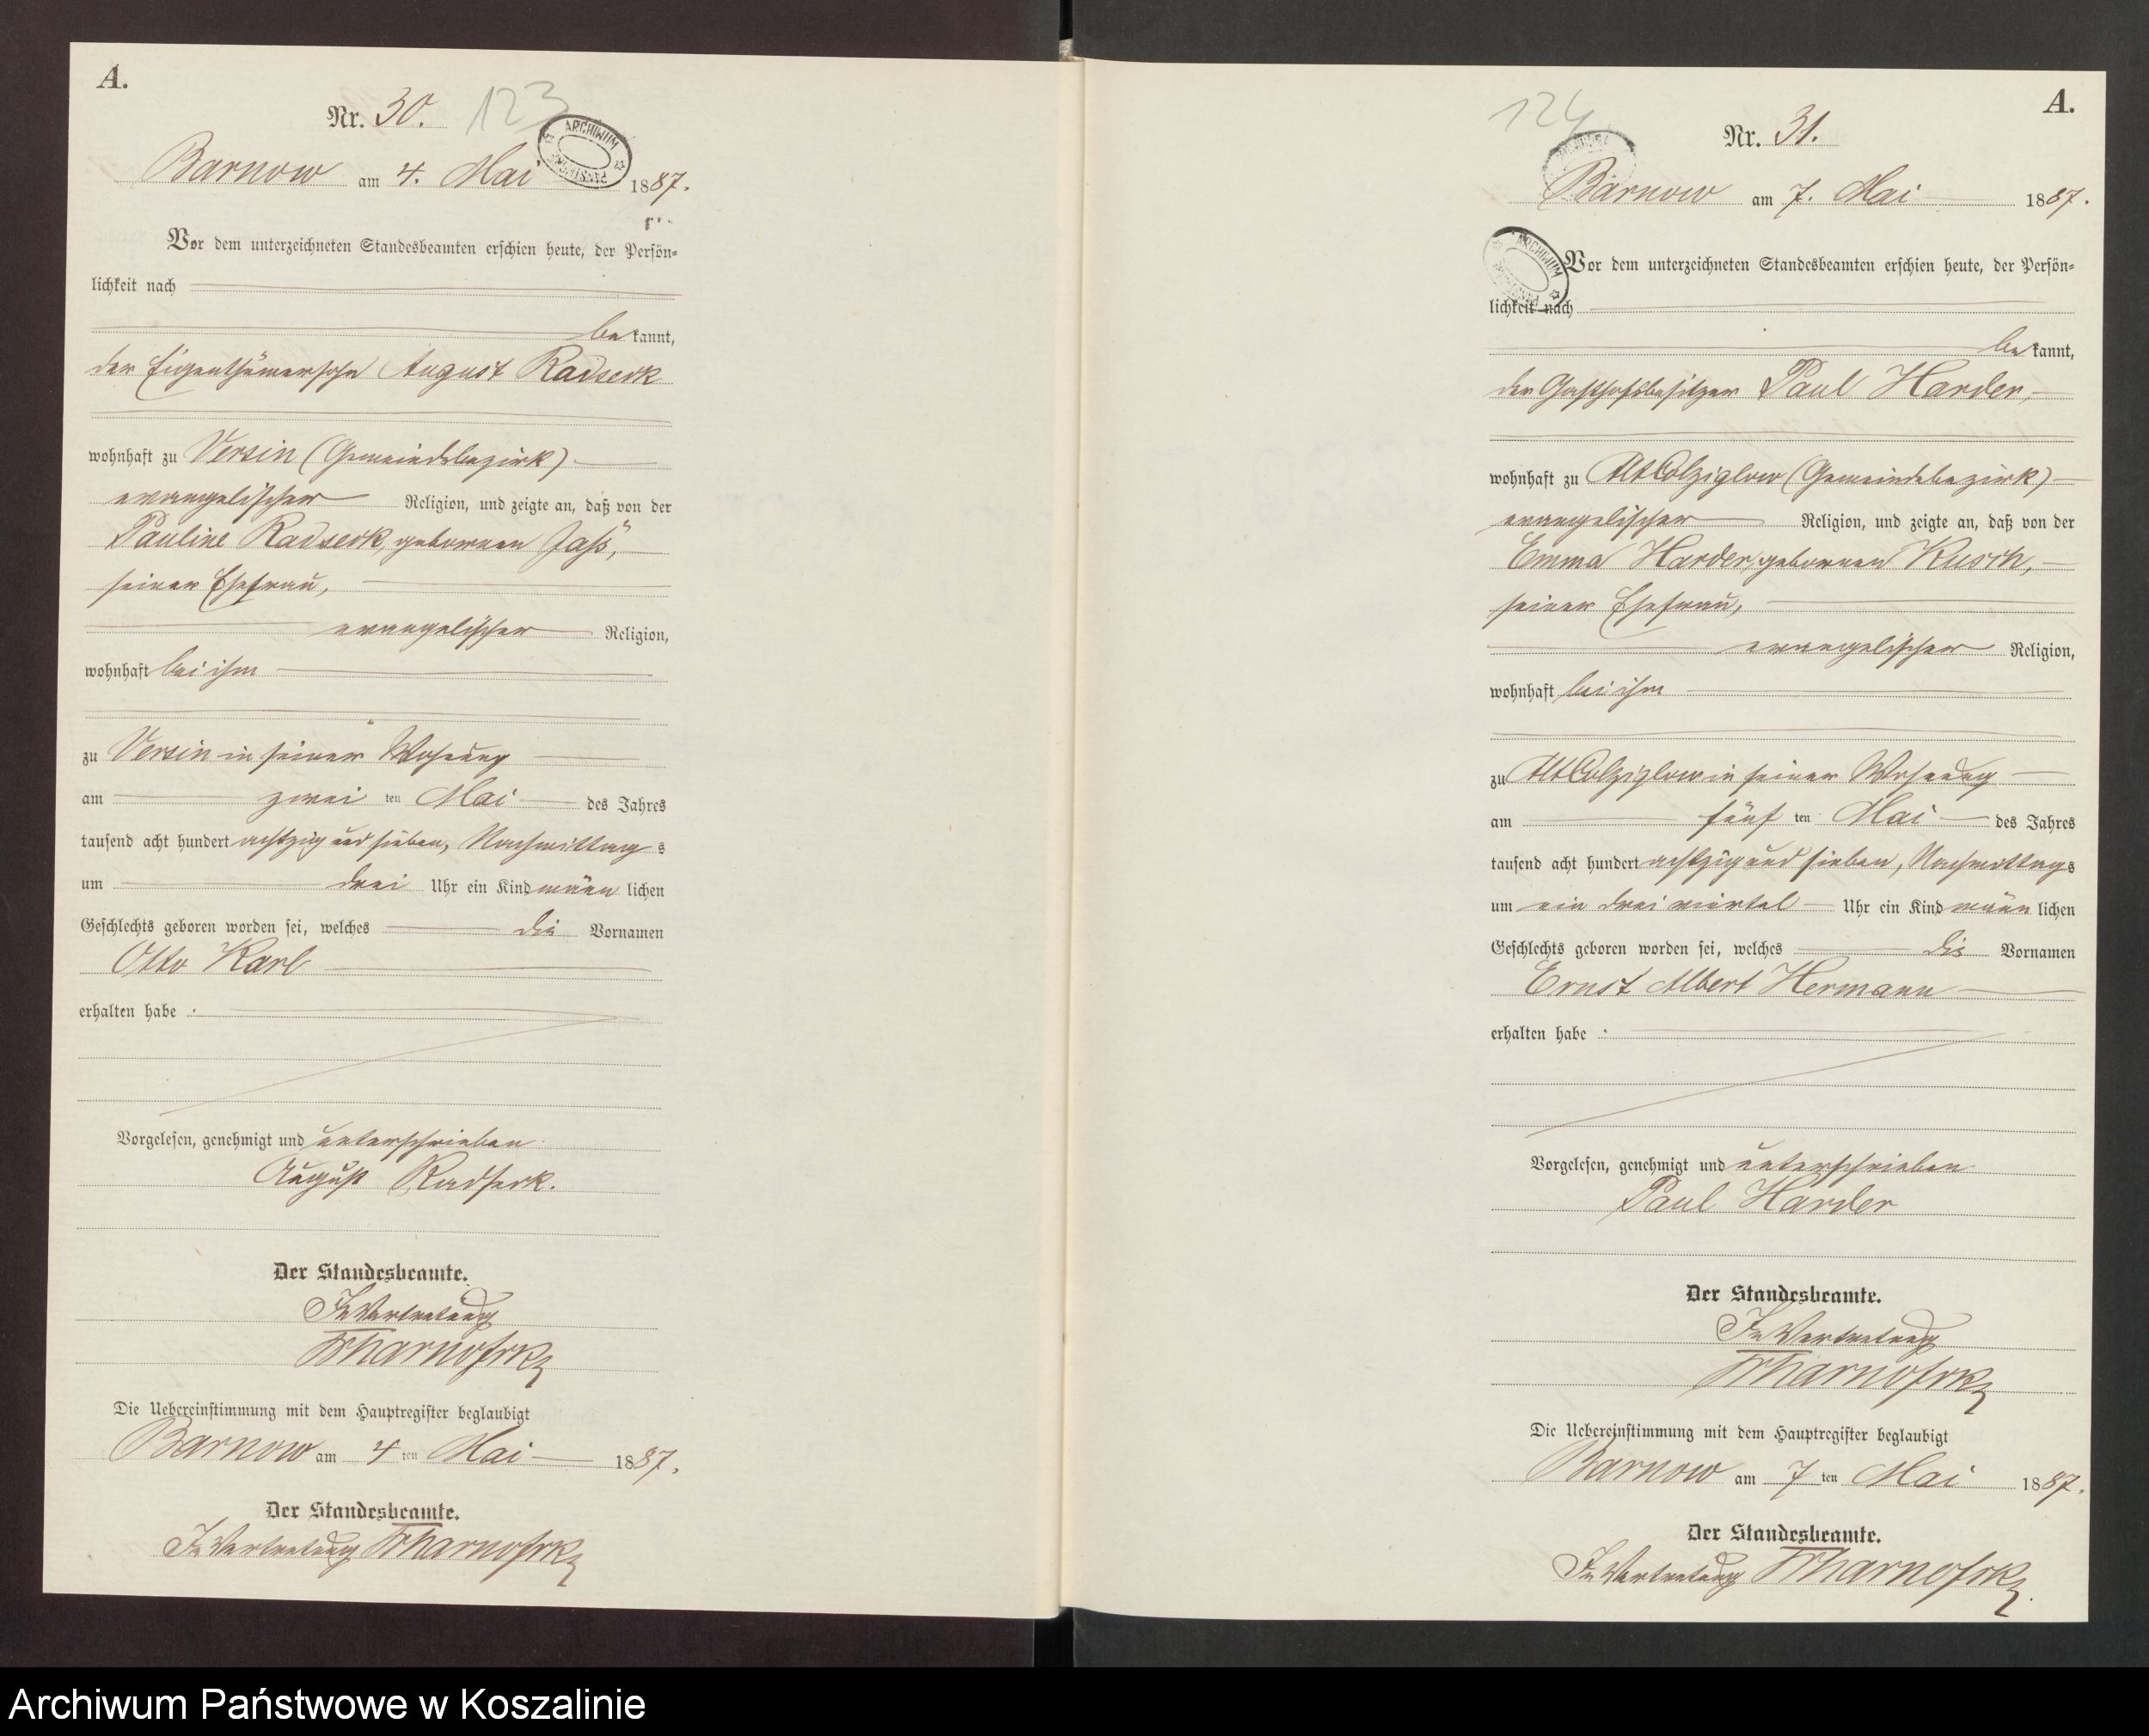 A.
Nr. 30. 123
ARCHIWUM
Barnow am 4. Mai 1887.
Vor dem unterzeichneten Standesbeamten erschien heute, der Persön-
lichkeit nach
bekannt,
der Eigenthümersohn August Radseck
wohnhaft zu Versin (Gemeindebezirk)
evangelischer Religion, und zeigte an, daß von der
Pauline Radseck, geborenen Jaß,
seiner Ehefrau,
evangelischer Religion,
wohnhaft bei ihm
zu Versin in seiner Wohnung
am zwei ten Mai des Jahres
tausend acht hundert achtzig und sieben, Nachmittags
um drei Uhr ein Kind männlichen
Geschlechts geboren worden sei, welches die Vornamen
Otto Karl
erhalten habe.
Vorgelesen, genehmigt und unterschrieben
August Radseck.
Der Standesbeamte.
In Vertretung
Die Uebereinstimmung mit dem Hauptregister beglaubigt
Barnow am 4 ten Mai 1887.
Der Standesbeamte.
In Vertretung
A.
124
Nr. 31.
Barnow am 7. Mai 1887.
ARCHIWUM
Vor dem unterzeichneten Standesbeamten erschien heute, der Persön-
lichkeit nach
bekannt,
der Gasthofsbesitzer Paul Harder,
wohnhaft zu Alt Colziglow (Gemeindebezirk)
evangelischer Religion, und zeigte an, daß von der
Emma Harder, geborenen Kusch,
seiner Ehefrau,
evangelischer Religion,
wohnhaft bei ihm
zu Alt Colziglow in seiner Wohnung
am fünf ten Mai des Jahres
tausend acht hundert achtzig und sieben, Nachmittags
um ein drei viertel Uhr ein Kind männlichen
Geschlechts geboren worden sei, welches die Vornamen
Ernst Albert Hermann
erhalten habe.
Vorgelesen, genehmigt und unterschrieben
Paul Harder
Der Standesbeamte.
In Vertretung
Die Uebereinstimmung mit dem Hauptregister beglaubigt
Barnow am 7 ten Mai 1887.
Der Standesbeamte.
In Vertretung
Archiwum Państwowe w Koszalinie